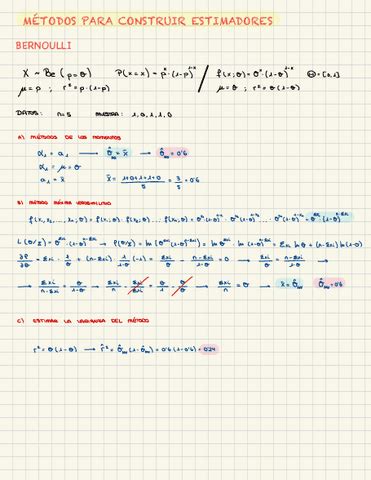 MÉTODOS PARA CONSTRUIR ESTIMADORES
BERNOULLI
X ~ Be (p=θ) P(X=x) = p^x · (1-p)^{1-x} / f(x;θ) = θ^x · (1-θ)^{1-x} Θ = [0,1]
μ = p ; σ² = p·(1-p) μ = θ ; σ² = θ(1-θ)
DATOS: n=5 MUESTRA: 1,0,1,1,0
A) MÉTODOS DE LOS MOMENTOS
α₁ = a₁ → θ̂ = x̄ → θ̂ = 0'6
α₁ = μ = θ
a₁ = x̄ x̄ = 1+0+1+1+0 / 5 = 3/5 = 0'6
B) MÉTODO MÁXIMA VEROSIMILITUD
f(x₁, x₂, ..., xₙ, θ) = f(x₁ θ) · f(x₂ θ) ... f(xₙ θ) = θ^{x₁} (1-θ)^{1-x₁} · θ^{x₂} · (1-θ)^{1-x₂} ... θ^{xₙ} (1-θ)^{1-xₙ} = θ^{Σxi} · (1-θ)^{n-Σxi}
L(θ/x̄) = θ^{Σxi} (1-θ)^{n-Σxi} → ℓ(θ/x̄) = ln (θ^{Σxi} (1-θ)^{n-Σxi}) = ln θ^{Σxi} + ln (1-θ)^{n-Σxi} = Σxi ln θ + (n-Σxi) ln (1-θ)
∂ℓ/∂θ = Σxi · 1/θ + (n-Σxi) · 1/(1-θ) · (-1) = Σxi/θ - (n-Σxi)/(1-θ) = 0 → Σxi/θ = (n-Σxi)/(1-θ) →
→ Σxi/n = θ → x̄ = θ̂ θ̂ = 0'6
C) ESTIMAR LA VARIANZA DEL MÉTODO
σ² = θ(1-θ) → σ̂² = θ̂ (1-θ̂) = 0'6 (1-0'6) = 0'24